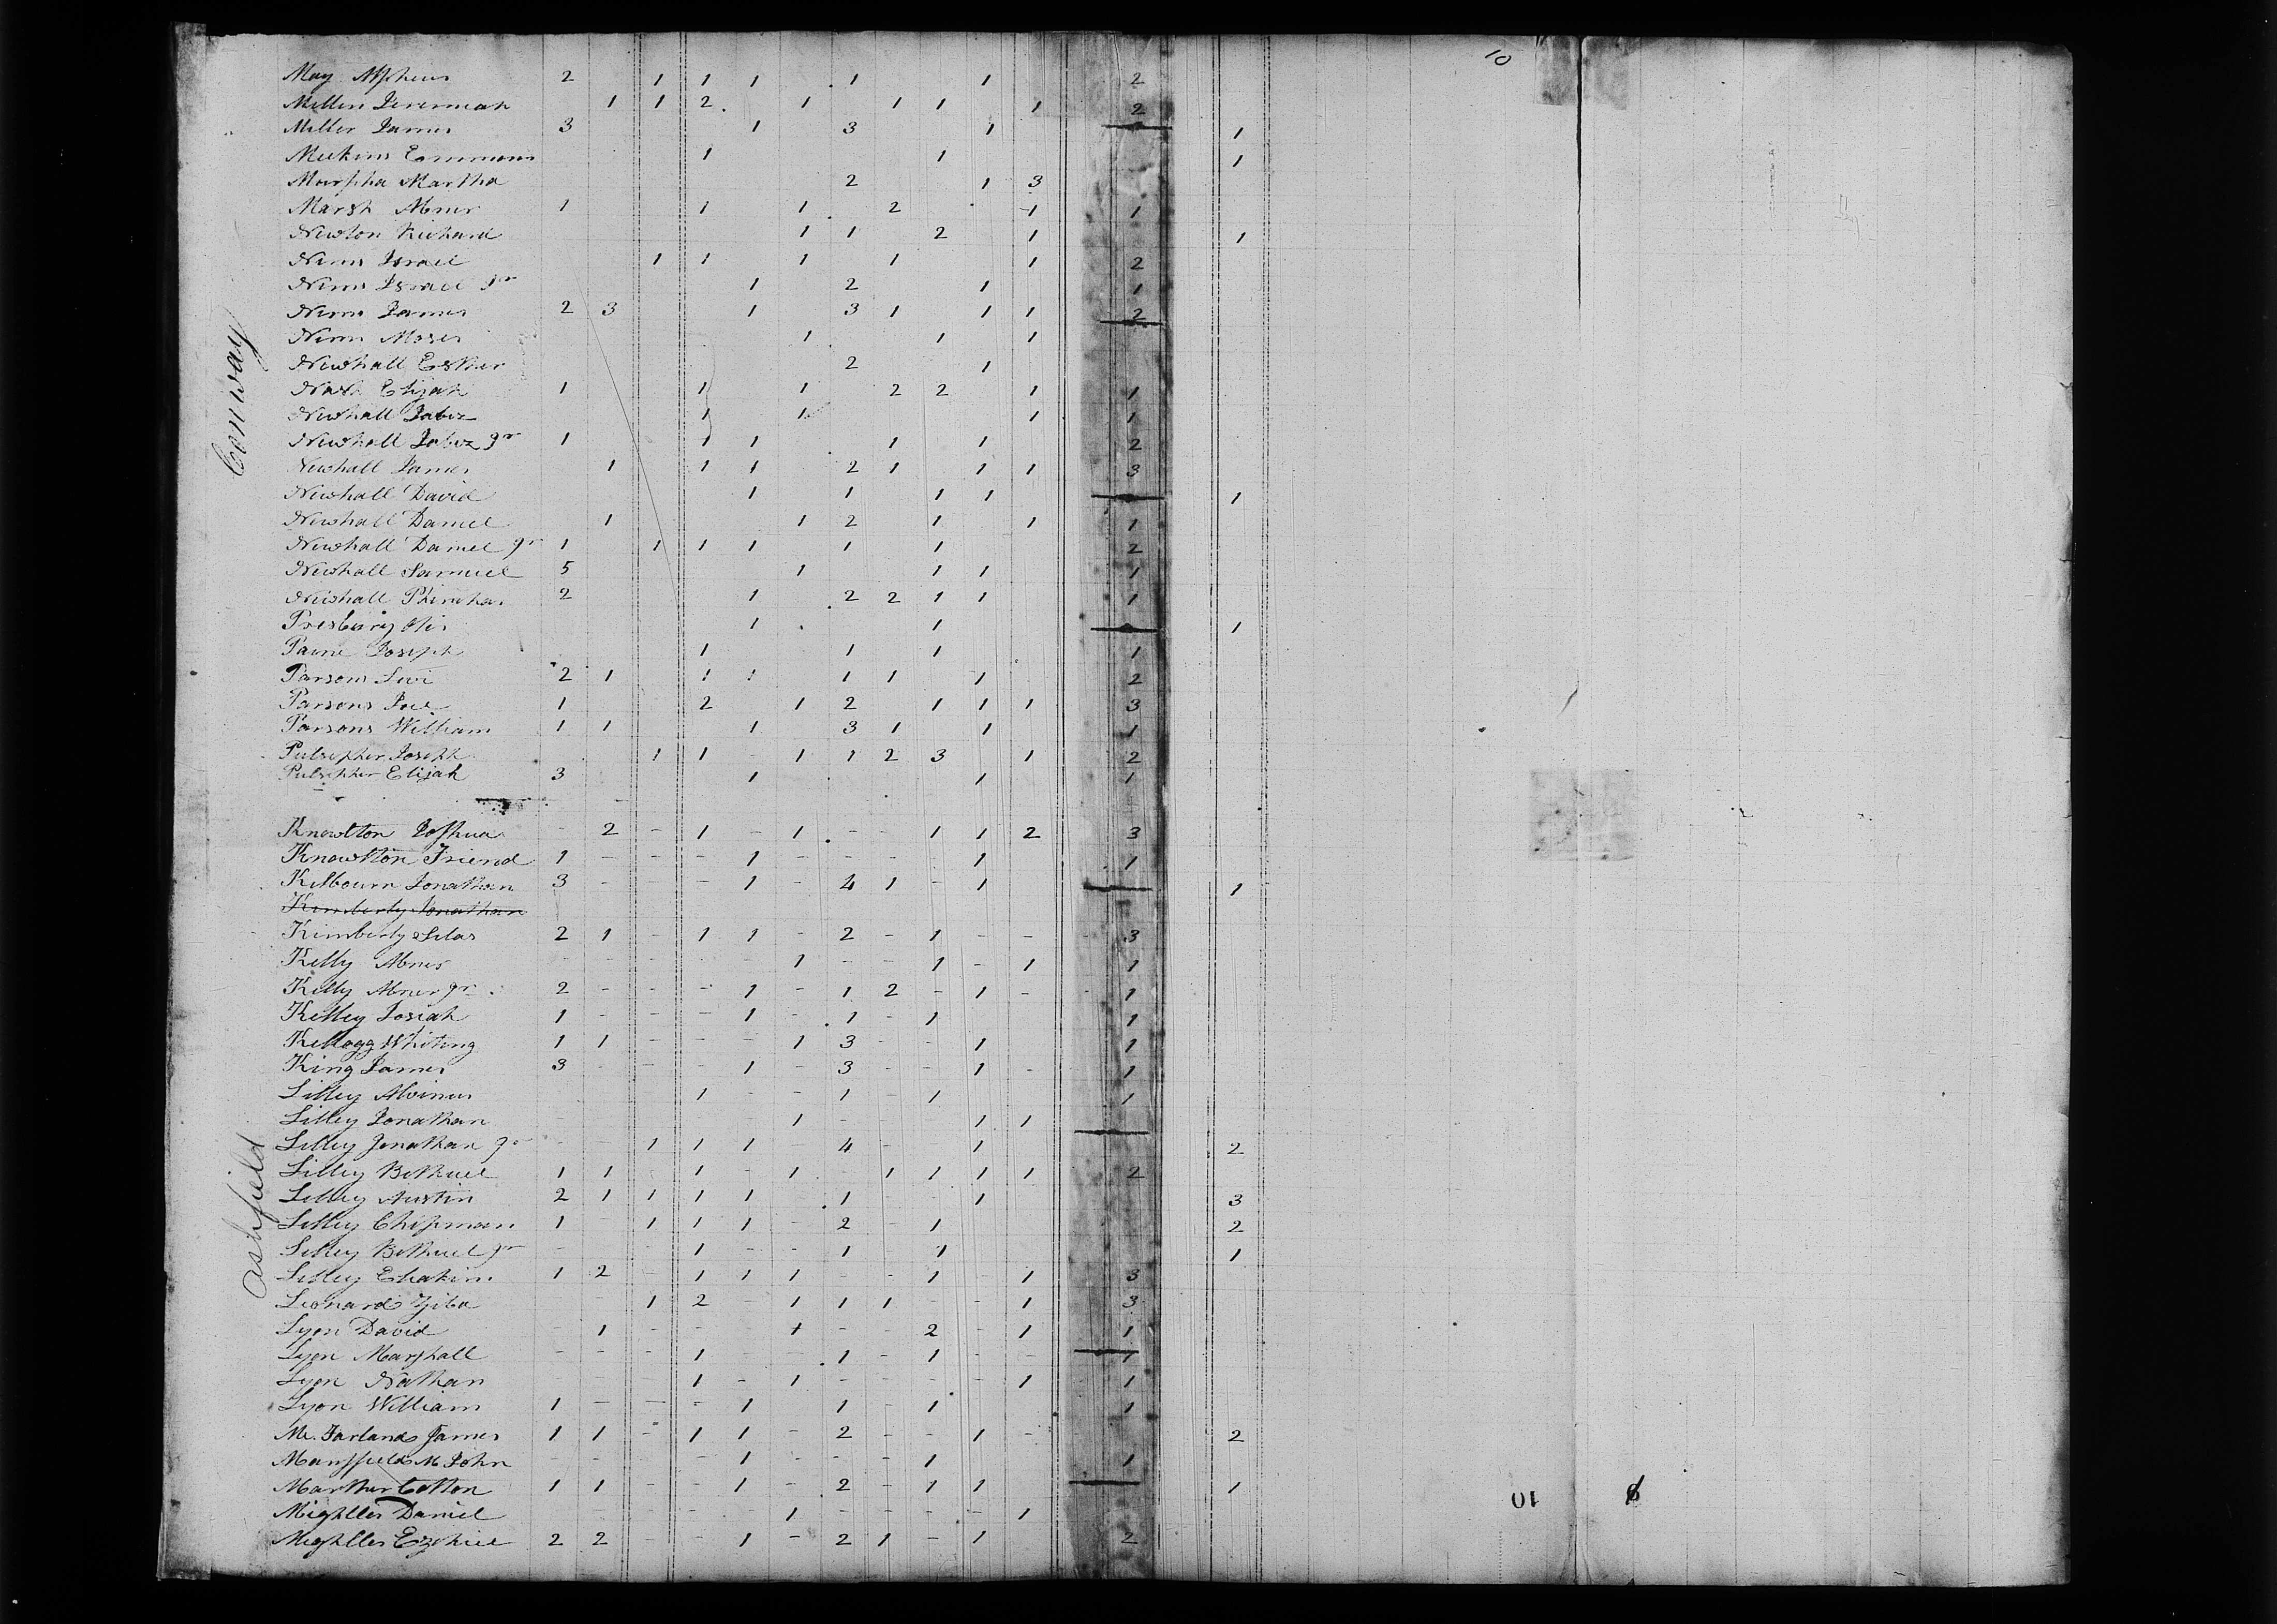 10
Conway
May Alpheus 2 1 1 1 1 1 2
Miller Jeremiah 1 1 2 1 1 1 1 2
Miller James 3 1 3 1 1
Meekins Emmons 1 1 1
Martha 2 1 3
Marsh Abner 1 1 1 2 1 1
Newton Richard 1 1 2 1 1
Nims Israel 1 1 1 1 1 2
Nims Israel Jr 1 2 1 1
Nims James 2 3 1 3 1 1 1 2
Nims Moses 1 1 1
Newhall Esther 2 1
Nash Elijah 1 1 1 2 2 1 1
Newhall Jabez 1 1 1 1
Newhall Jabez Jr 1 1 1 1 1 2
Newhall James 1 1 1 2 1 1 1 3
Newhall David 1 1 1 1 1
Newhall Daniel 1 1 2 1 1 1
Newhall Daniel Jr 1 1 1 1 1 1 2
Newhall Samuel 5 1 1 1 1
Newhall Phinehas 2 1 2 2 1 1 1
Presbury 1 1 1
Paine Joseph 1 1 1 1
Parsons Levi 2 1 1 1 1 1 1 2
Parsons Joel 1 2 1 2 1 1 1 3
Parsons William 1 1 1 3 1 1 1
Pulsipher Joseph 1 1 1 1 2 3 1 2
Pulsipher Elijah 3 1 1 1
Ashfield
Knowlton Joshua - 2 - 1 - 1 - 1 1 2 3
Knowlton Friend 1 - - - 1 - - - 1 1
Kilbourn Jonathan 3 - - - 1 - 4 1 - 1 1
Kimberly Jonathan
Kimberly Silas 2 1 - 1 1 - 2 - 1 - - 3
Kelly Abner - - - - - 1 - - 1 - 1 1
Kelly Abner Jr 2 - - - 1 - 1 2 - 1 - 1
Kelley Josiah 1 - - - 1 - 1 - 1 1
Kellogg Whiting 1 1 - - - 1 3 - - 1 1
King James 3 - - - 1 - 3 - - 1 - 1
Lilley Alvinus 1 - - 1 - 1 1
Lilley Jonathan 1 - 1 1
Lilley Jonathan Jr - - 1 1 1 4 - 1 2
Lilley Bethuel 1 1 1 - 1 - 1 1 1 1 2
Lilley Austin 2 1 1 1 1 1 1 3
Lilley Chipman 1 - 1 1 1 - 2 - 1 2
Lilley Bethuel Jr - - 1 - - 1 1 1
Lilley Eliakim 1 2 - 1 1 1 - - 1 - 1 3
Leonard Ziba 1 2 - 1 1 1 - - 1 3
Lyon David - 1 - - 1 - - 2 - 1 1
Lyon Marshall - - - 1 - - 1 - 1 - - 1
Lyon Nathan 1 - 1 - - - - 1 1
Lyon William 1 - - - 1 1 - 1 1
Mc. Farland James 1 1 - 1 1 - 2 - - 1 - 2
Mansfield M John - - - - 1 - - - 1 1
Marther Cotton 1 1 - - 1 - 2 - 1 1 1
Mighlles Daniel 1 - - - - 1
Mighlles Ezekiel 2 2 - - 1 - 2 1 - 1 2
10